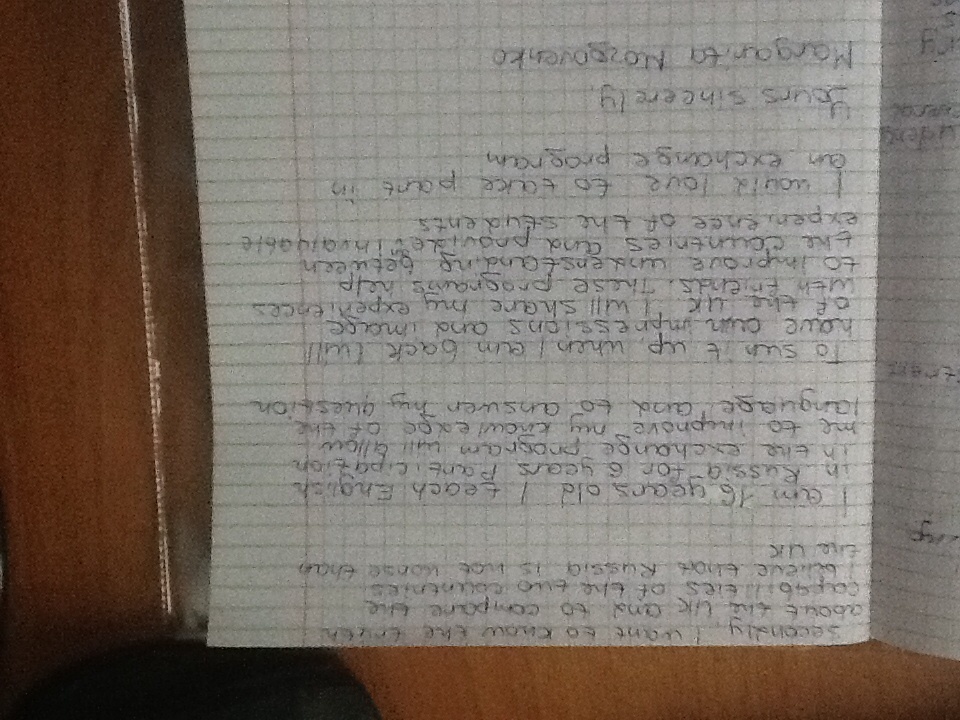 secondly, I want to know the truth
about the UK and to compare the
capabilities of the two countries
I believe that Russia is not worse than
the UK
I am 16 years old I teach English
in Russia for 6 years Participation
in the exchange program will allow
me to improve my knowledge of the
language and to answer my question
To sum it up, when I am back I will
have own impressions and image
of the UK I will share my experiences
with friends. These programs help
to improve understanding between
the countries and provides invaluable
experience of the students
I would love to take part in
an exchange program
Yours sincerely,
Margarita Mozgovenko